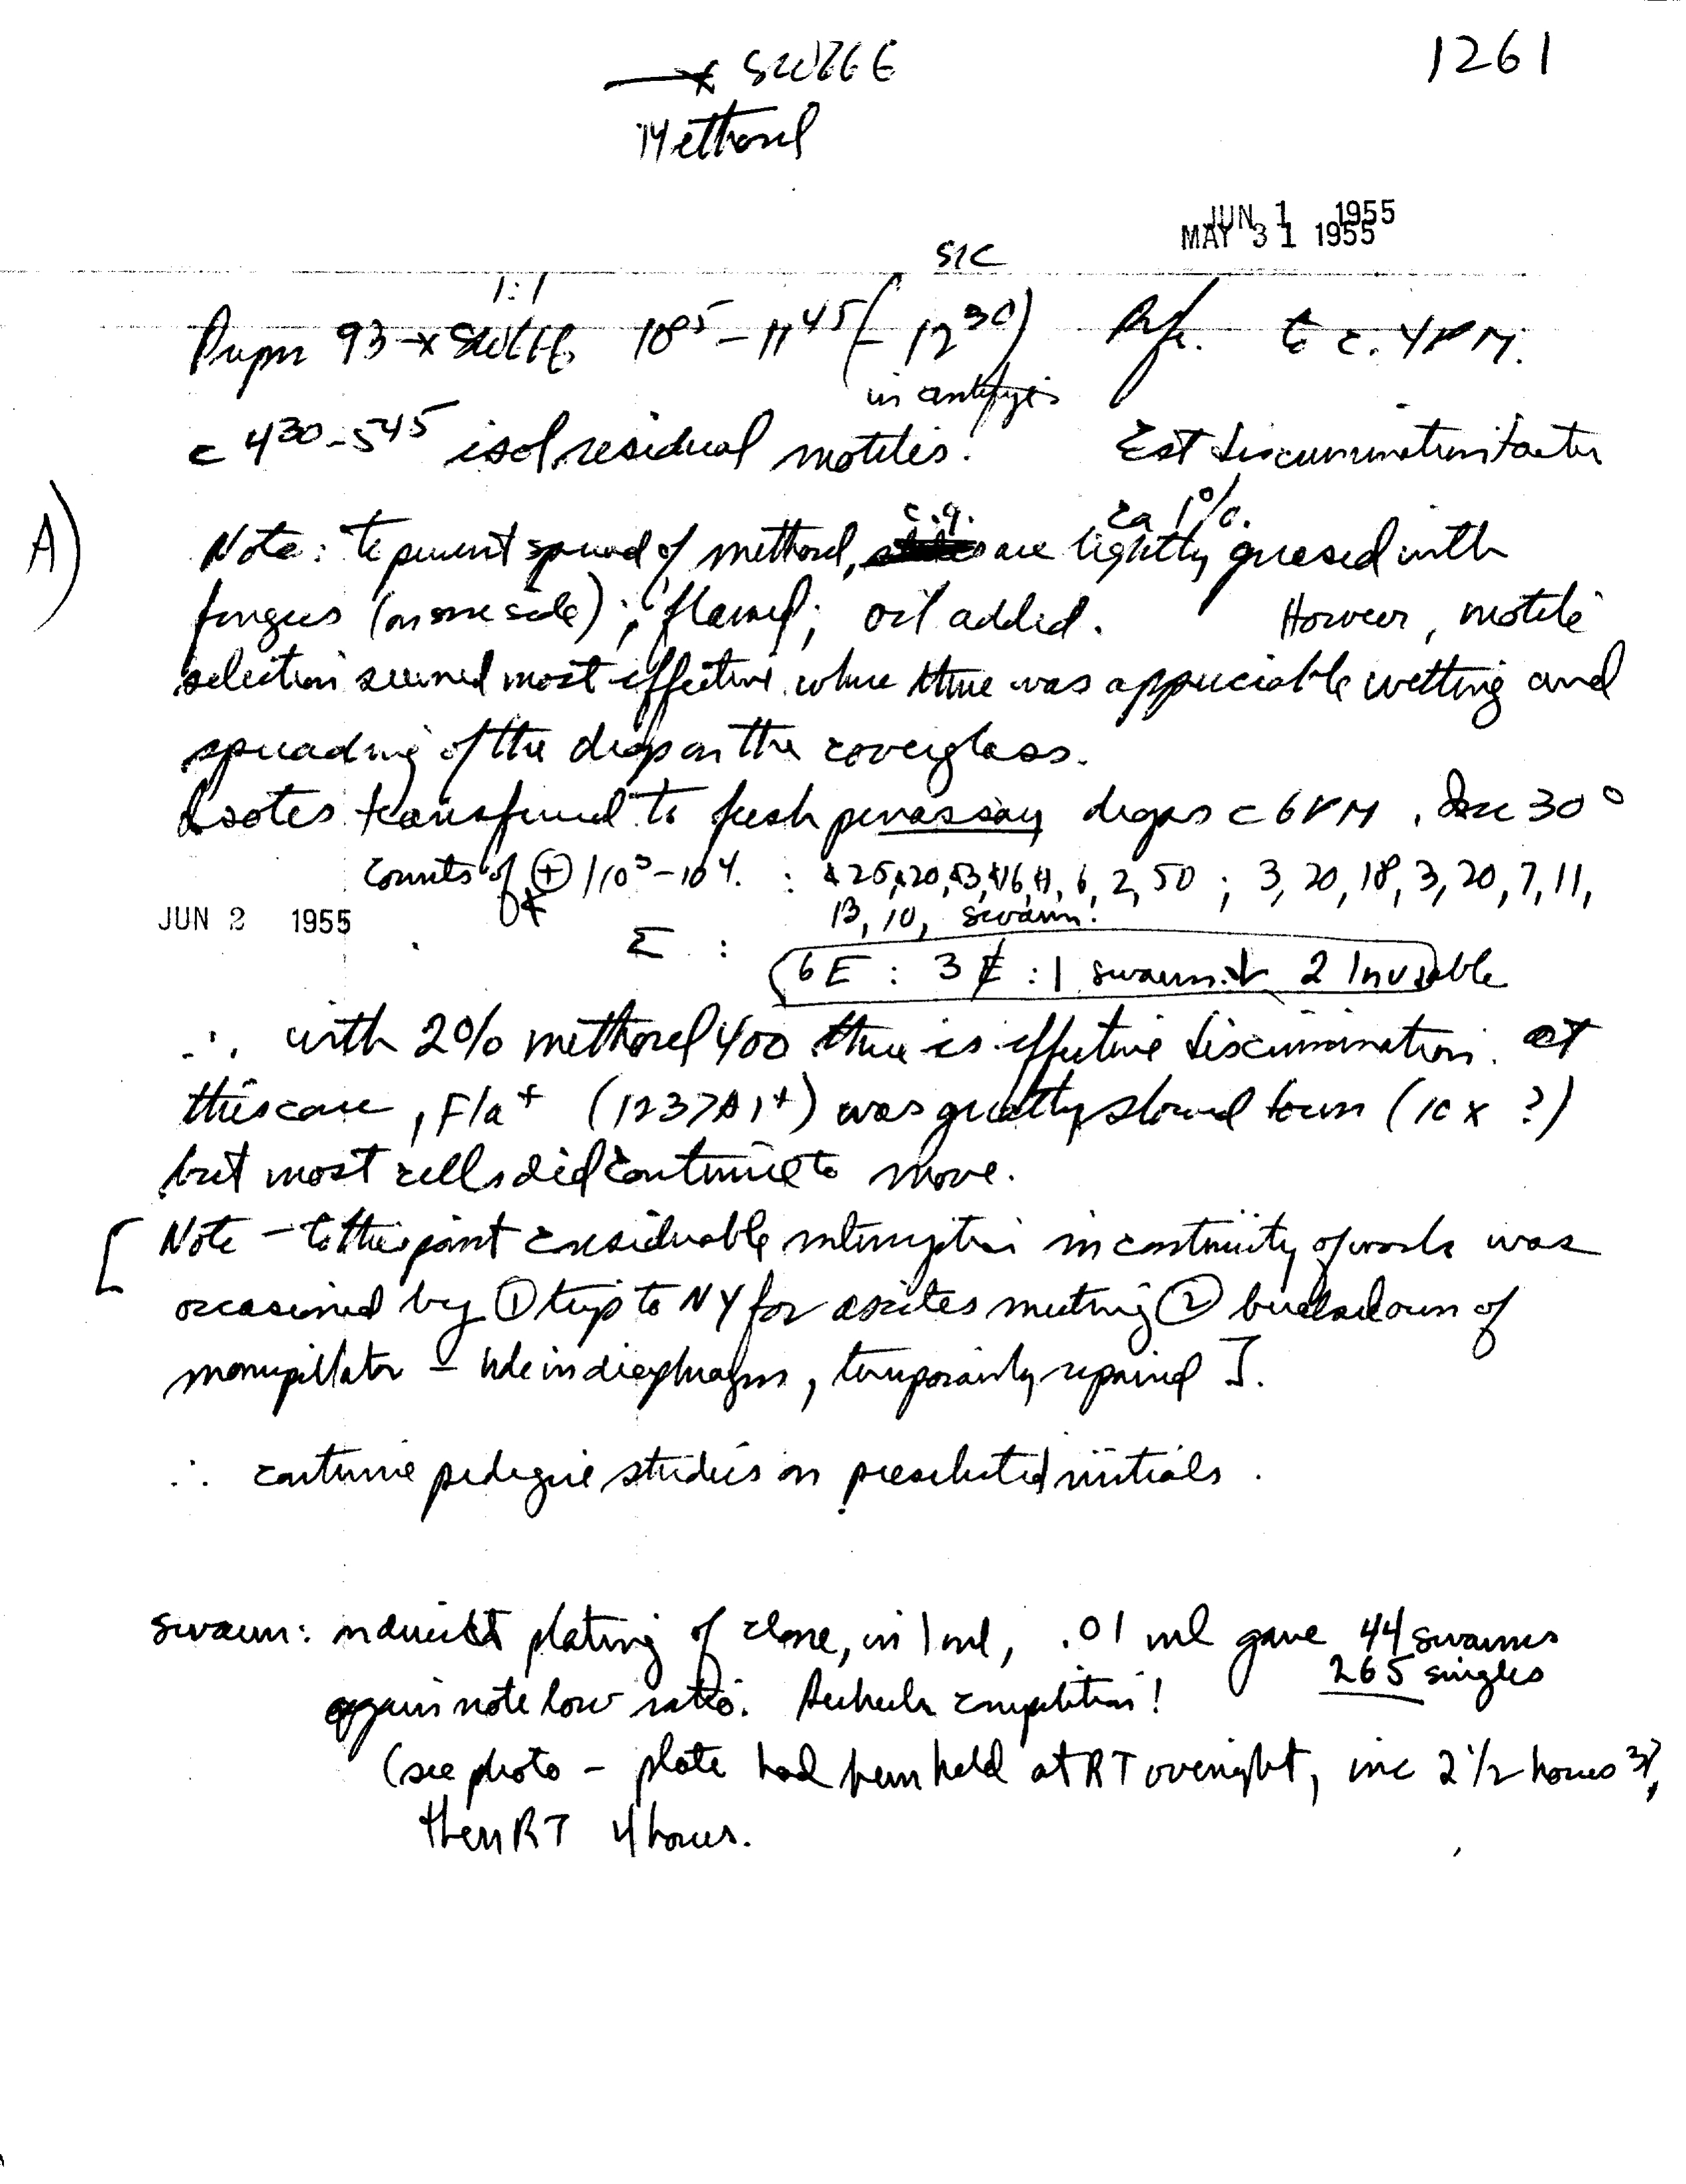 1261
—x SW666
Methocel
JUN 1 1955
MAY 31 1955
SIC
1:1
93 —x SW666 10 05 – 11 45 (– 12 30) Rfr. to c. 4PM.
in
c 4 30 – 5 45 isol. residual motiles. Est discrimination factor
ca 1%.
A)
c.g.
Note: To prevent spread of methocel, are lightly greased with
fingers (on one side); flamed; oil added. However, motile
selection seemed most effective where there was appreciable wetting and
spreading of the drop on the coverglass.
Isolates transferred to fresh penassay drops c 6PM. Inc 30°
Counts of (+) / 10³–10⁴. : 6, 2, 50 ; 3, 20, 18, 3, 20, 7, 11,
13, 10, swarm!
JUN 2 1955
Σ : 6 E : 3 E̸ : 1 swarm + 2 Inviable
∴ with 2% methocel 400 there is effective discrimination. At
this conc, Fla⁺ (1237A1⁺) was greatly slowed down (10 x ?)
but most cells did continue to move.
[ Note – to this point considerable interruption in continuity of work was
occasioned by ① trip to NY for ascites meeting ② breakdown of
manipulator – hole in diaphragm, temporarily repaired ].
∴ continue pedigree studies on preselected initials.
swarm: indirect plating of clone, in 1 ml, .01 ml gave 44 swarms
265 singles
again note low ratio. Recheck competition!
(see photo – plate had been held at RT overnight, inc 2 1/2 hours 37,
then RT 4 hours.